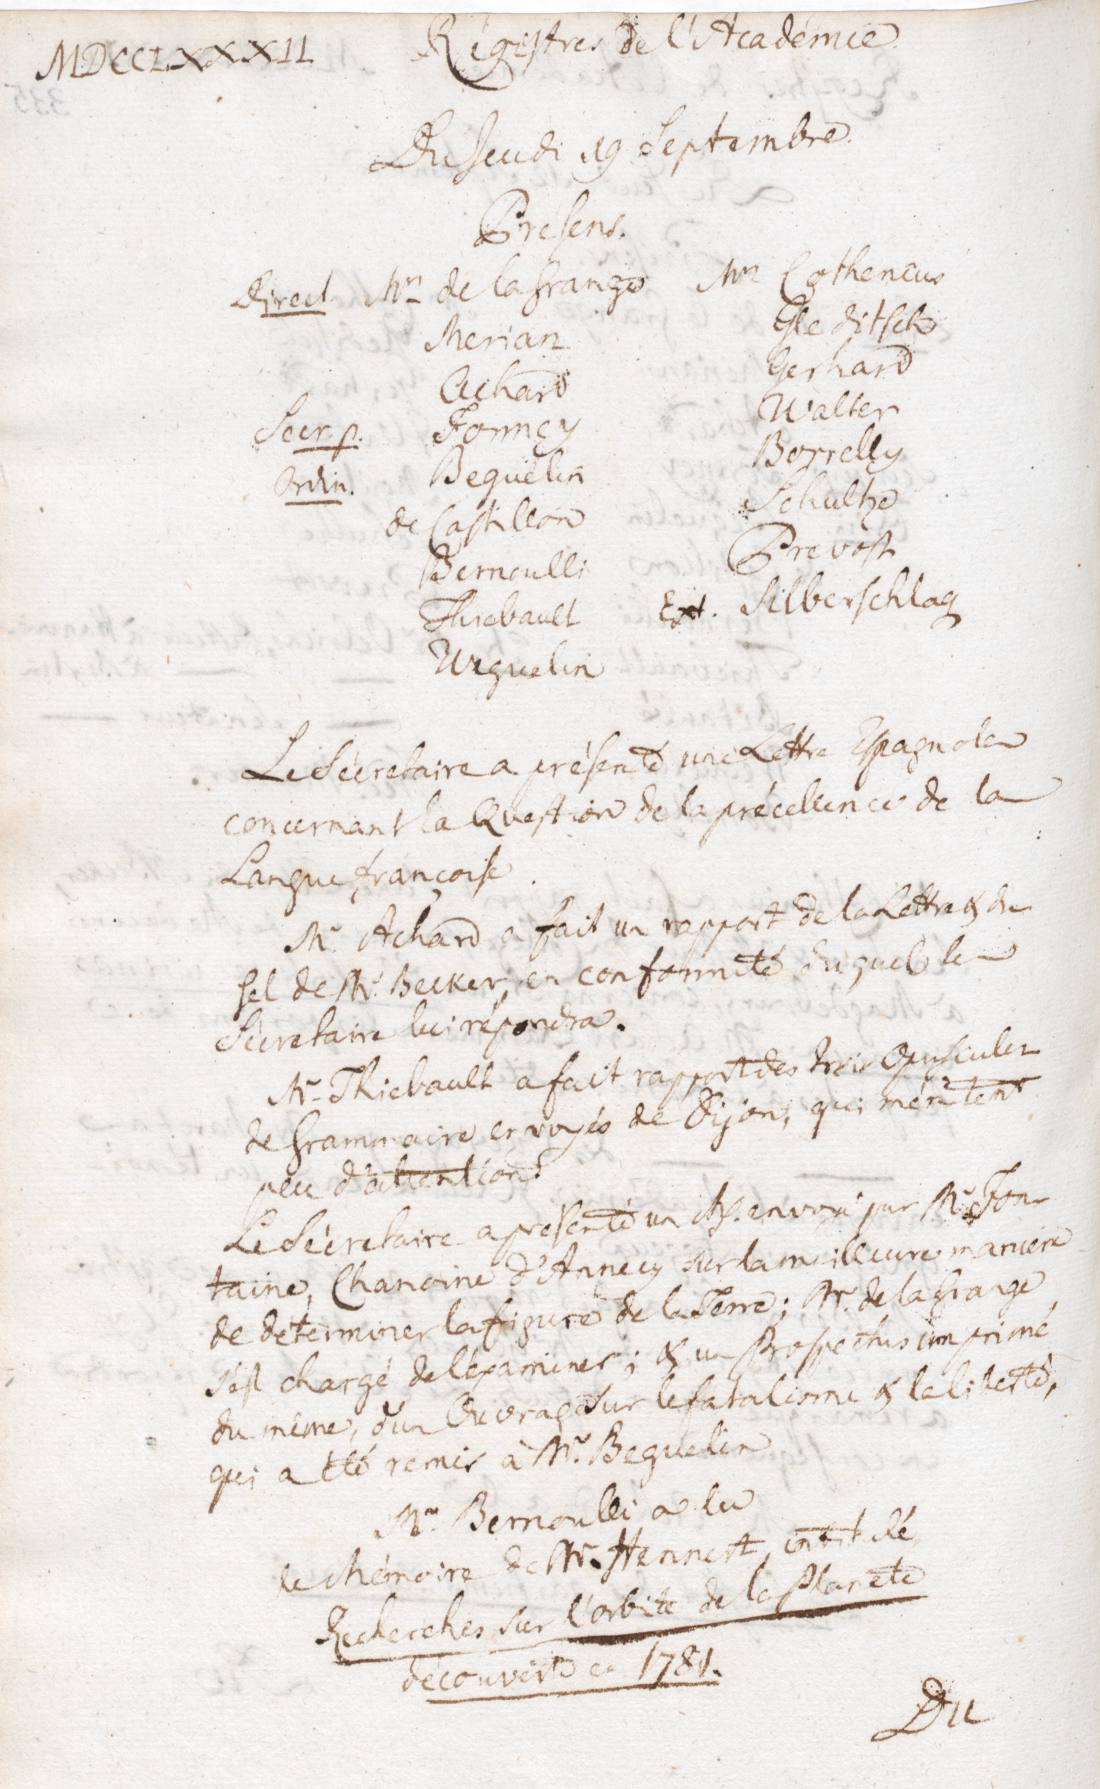 MDCCLXXXII
Régistres de l'Académie
Du Jeudi 19 Septembre.
Présens.
Direct. Mrs de la Grange
Merian
Achard
Secr. p. Formey
Ordin. Beguelin
de Castillon
Bernoulli
Thiebault
Weguelin
Mrs Cothenius
Gleditsch
Gerhard
Walter
Borrelly
Schultze
Prevost
Ext. Silberschlag
Le Sécretaire a présenté une Lettre Espagnole
concernant la Question de la précellence de la
Langue françoise.
Mr. Achard a fait un rapport de la Lettre & du
sel de Mr. Becker, en conformité duquel le
Sécretaire lui répondra.
Mr. Thiebault a fait rapport des trois Opuscules
de Grammaire envoyés de Dijon, qui méritent
peu d'attention.
Le Sécretaire a présenté un Ms. envoyé par Mr. Fon-
taine, Chanoine d'Annecy sur la meilleure maniere
de déterminer la figure de la Terre; Mr. de la Grange
s'est chargé de l'examiner; & un Prospectus imprimé
du même, d'un Ouvrage sur le fatalisme & la liberté,
qui a été remis à Mr. Beguelin
Mr. Bernoulli a lu
le Mémoire de Mr. Hennert, intitulé,
Recherches sur l'orbite de la Planete
découverte en 1781.
Du